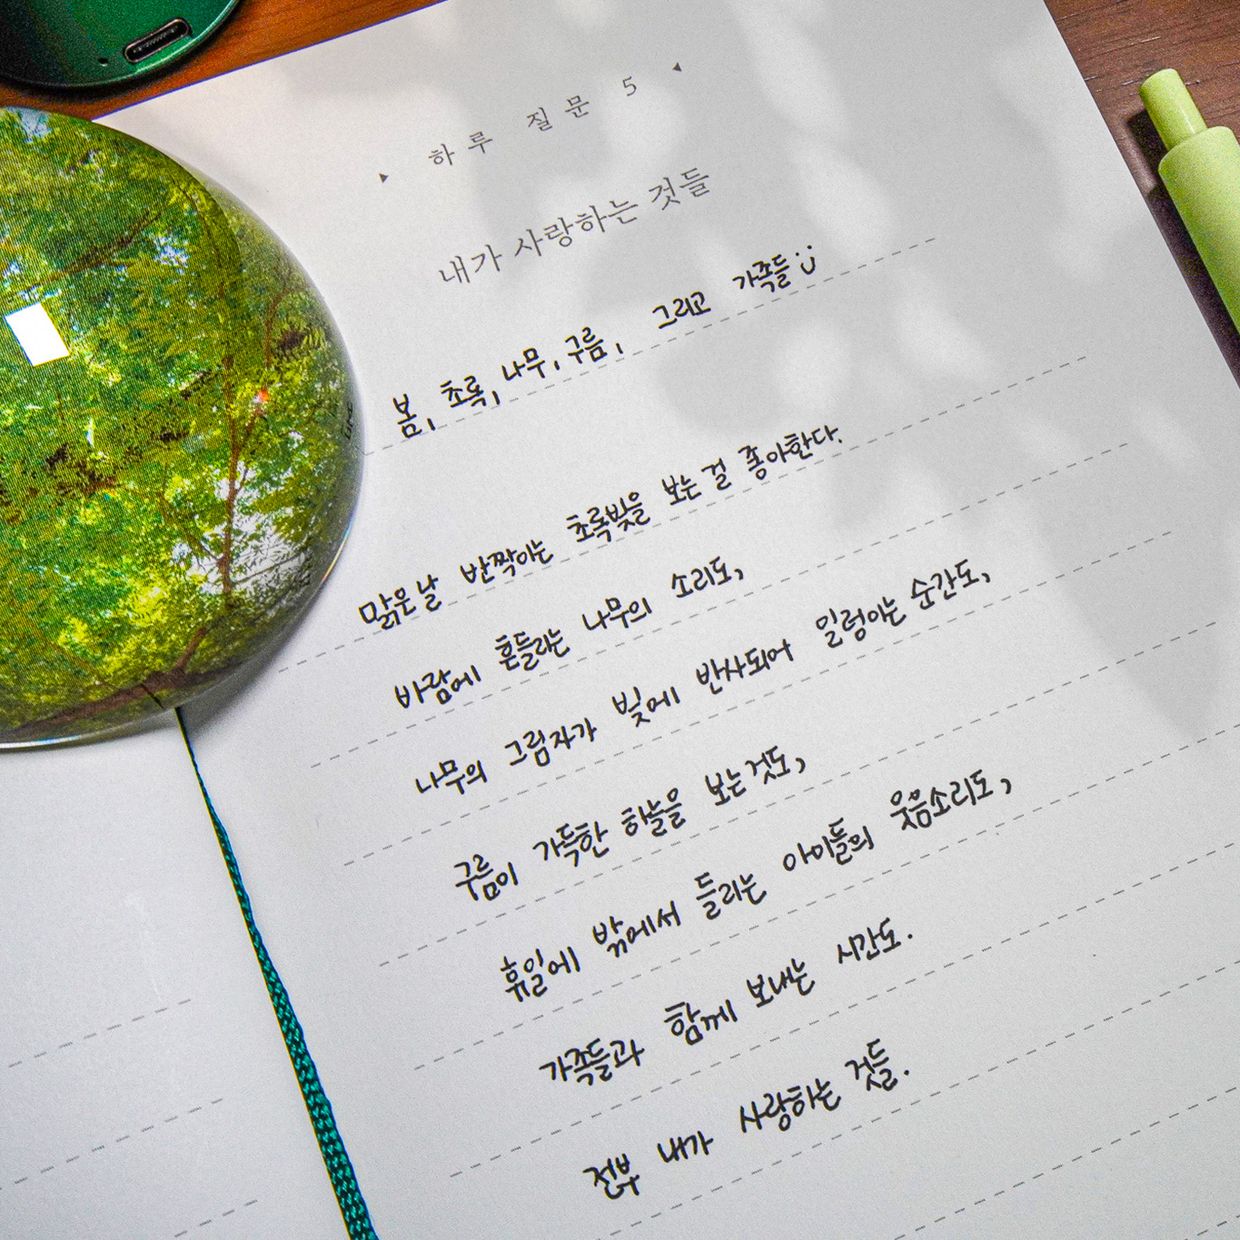 ▸ 하루 질문 5 ◂
내가 사랑하는 것들
봄, 초록, 나무, 구름, 그리고 가족들 :)
맑은 날 반짝이는 초록빛을 보는 걸 좋아한다.
바람에 흔들리는 나무의 소리도,
나무의 그림자가 빛에 반사되어 일렁이는 순간도,
구름이 가득한 하늘을 보는 것도,
휴일에 밖에서 들리는 아이들의 웃음소리도,
가족들과 함께 보내는 시간도.
전부 내가 사랑하는 것들.